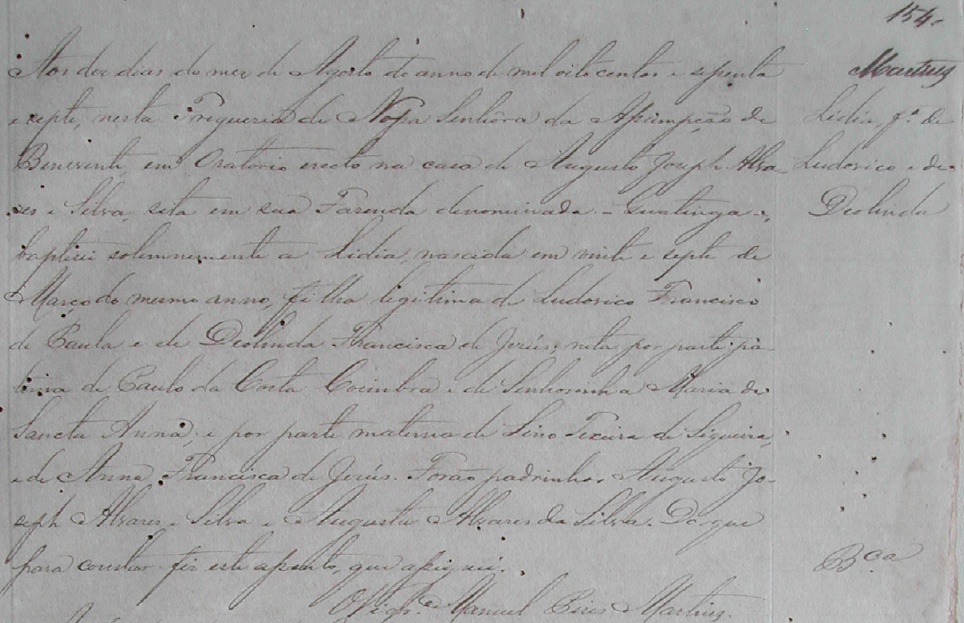 154.
Martins
Aos dez dias do mez de Agosto do anno de mil oitocentos e septenta
e septe, nesta Freguezia de Nossa Senhôra da Assumpção de
Benevente, em Oratorio erecto na casa de Augusto Joseph Alva-
res e Silva sita em sua Fazenda denominada - Guatinga -,
baptizei solemnemente a Lidia, nascida em vinte e septe de
Março do mesmo anno, filha legitima de Ludovico Francisco
de Paula e de Deolinda Francisca de Jesús; neta por parte pa-
terna de Paulo da Costa Coimbra e de Senhorinha Maria de
Sancta Anna, e por parte materna de Lino Texeira de Siqueira
e de Anna Francisca de Jesús. Forão padrinhos Augusto Jo-
seph Alvares e Silva e Augusta Alvares da Silva. Do que
para constar fiz este assento, que assignei.
O Vigr.º Manuel Pires Martins.
Lidia, f.ª de
Ludovico e de
Deolinda
B.ca